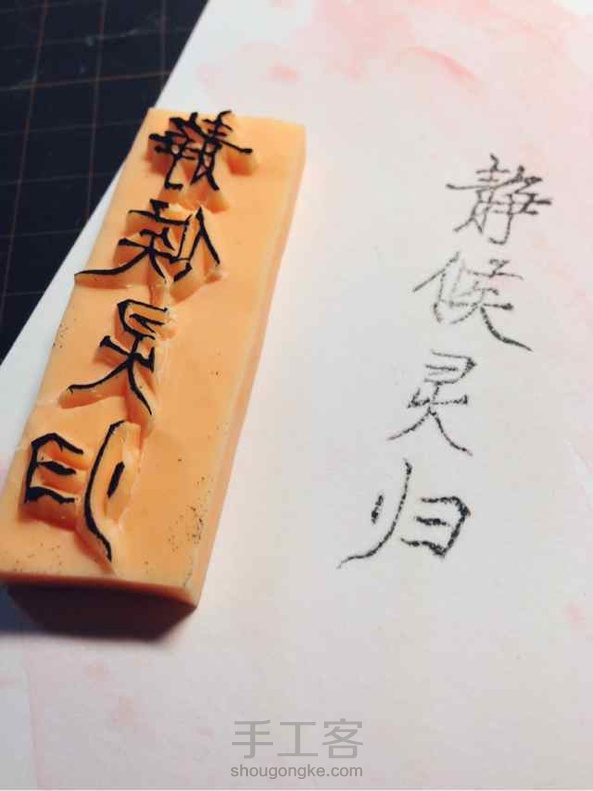 静候灵归
静候灵归
手工客
shougongke.com